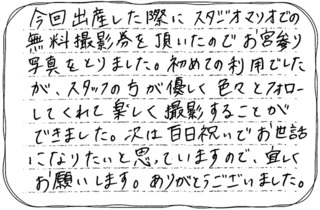 今回出産した際にスタジオマリオでの
無料撮影券を頂いたのでお宮参り
写真をとりました。初めての利用でした
が、スタッフの方が優しく色々とフォロー
してくれて楽しく撮影することが
できました。次は百日祝いでお世話
になりたいと思っていますので、宜しく
お願いします。ありがとうございました。